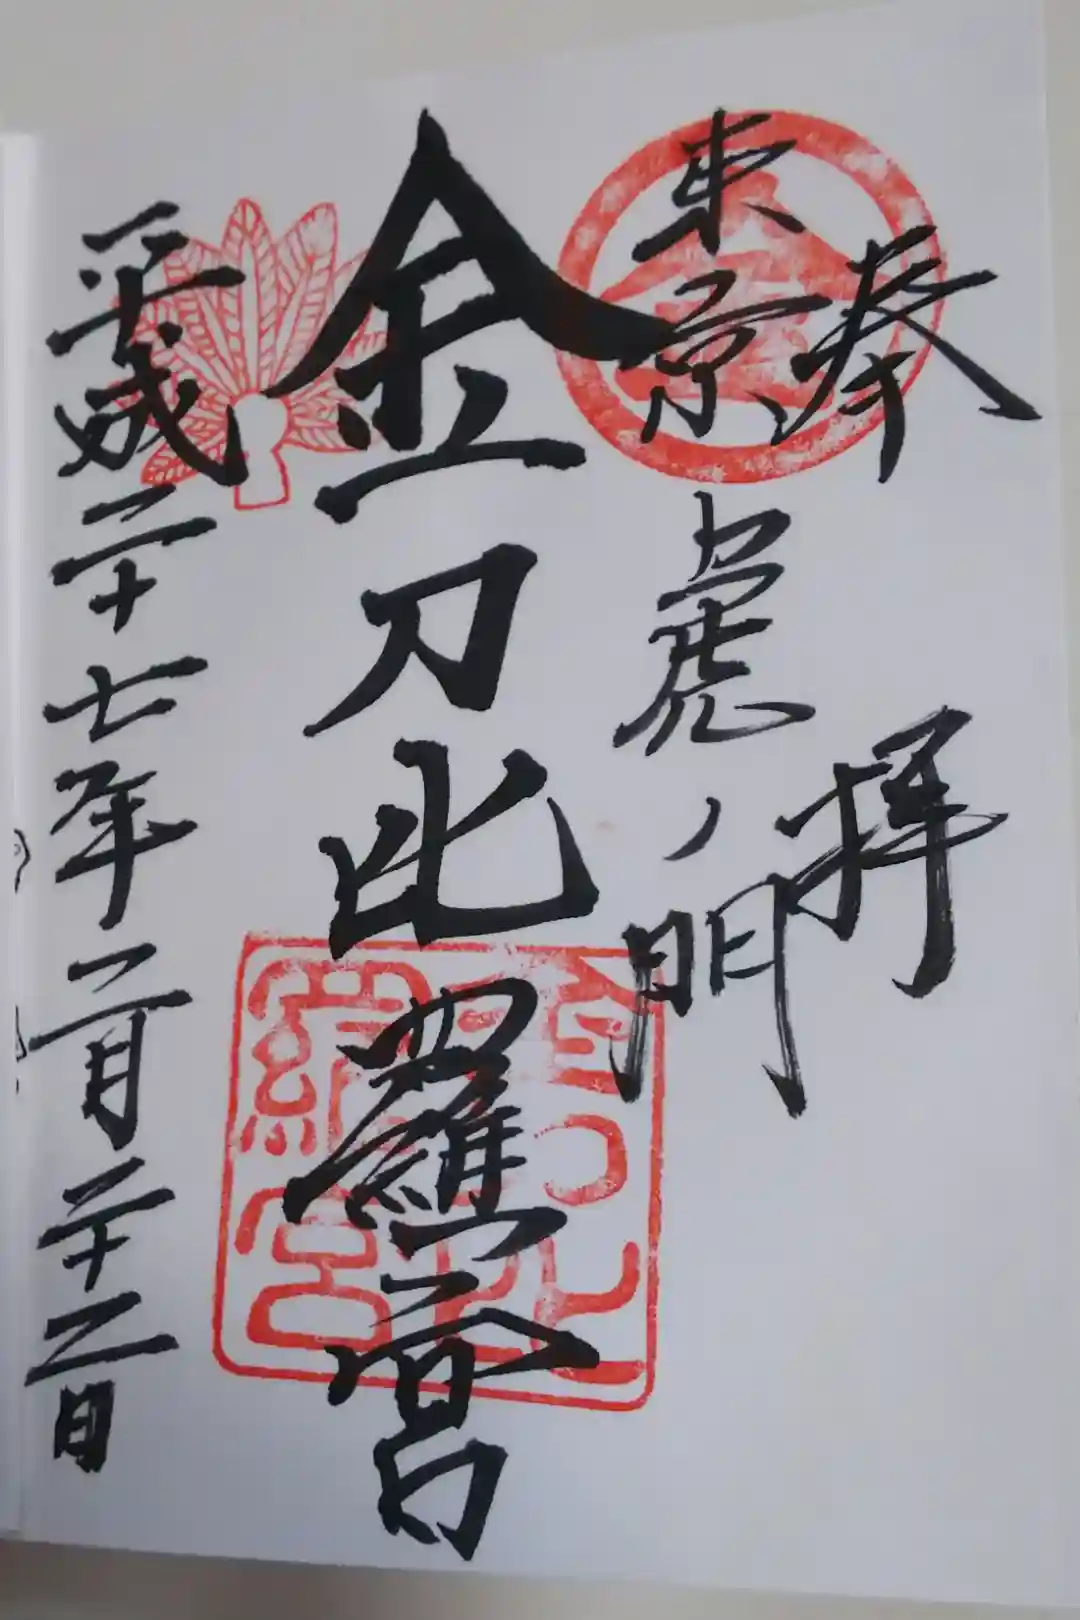 奉拝
東京虎ノ門
金刀比羅宮
平成二十七年二月二十二日
金
金刀比
羅宮